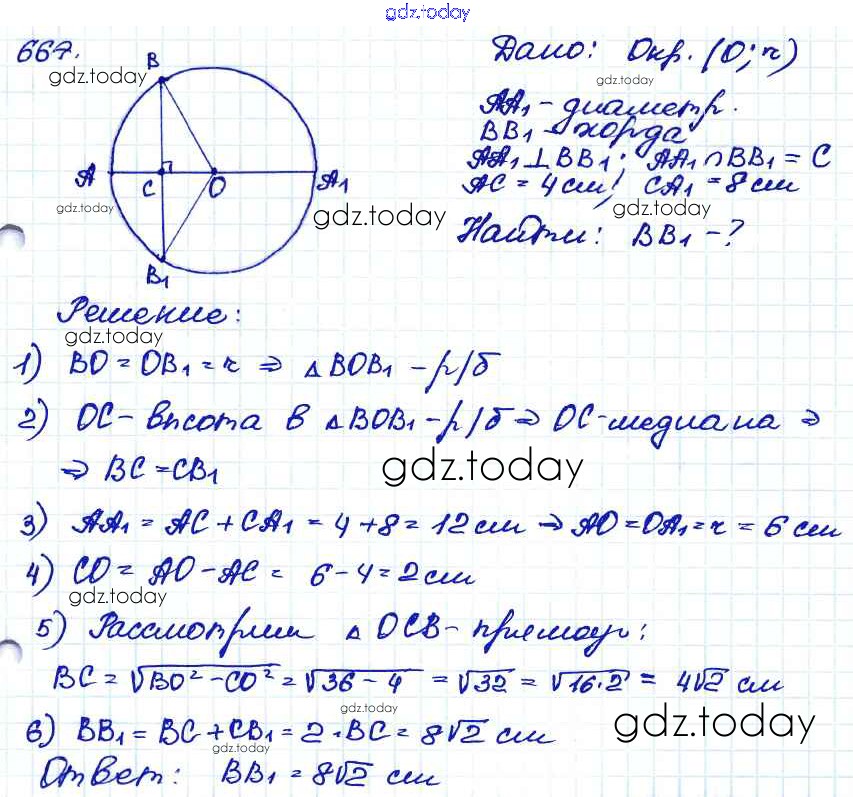 gdz.today
667.
gdz.today
B
A
C
O
A₁
B₁
gdz.today
gdz.today
Дано: Окр. (O; r)
gdz.today
AA₁ - диаметр.
BB₁ - хорда
AA₁ ⊥ BB₁; AA₁ ∩ BB₁ = C
AC = 4 см; CA₁ = 8 см
gdz.today
Найти: BB₁ - ?
Решение:
gdz.today
1) BO = OB₁ = r ⇒ △BOB₁ - р/б
2) OC - высота в △BOB₁ - р/б ⇒ OC - медиана ⇒
⇒ BC = CB₁
gdz.today
3) AA₁ = AC + CA₁ = 4 + 8 = 12 см ⇒ AO = OA₁ = r = 6 см
4) CO = AO - AC = 6 - 4 = 2 см
gdz.today
5) Рассмотрим △OCB - прямоуг:
BC = √BO² - CO² = √36 - 4 = √32 = √16·2 = 4√2 см
gdz.today
6) BB₁ = BC + CB₁ = 2·BC = 8√2 см
gdz.today
gdz.today
Ответ: BB₁ = 8√2 см